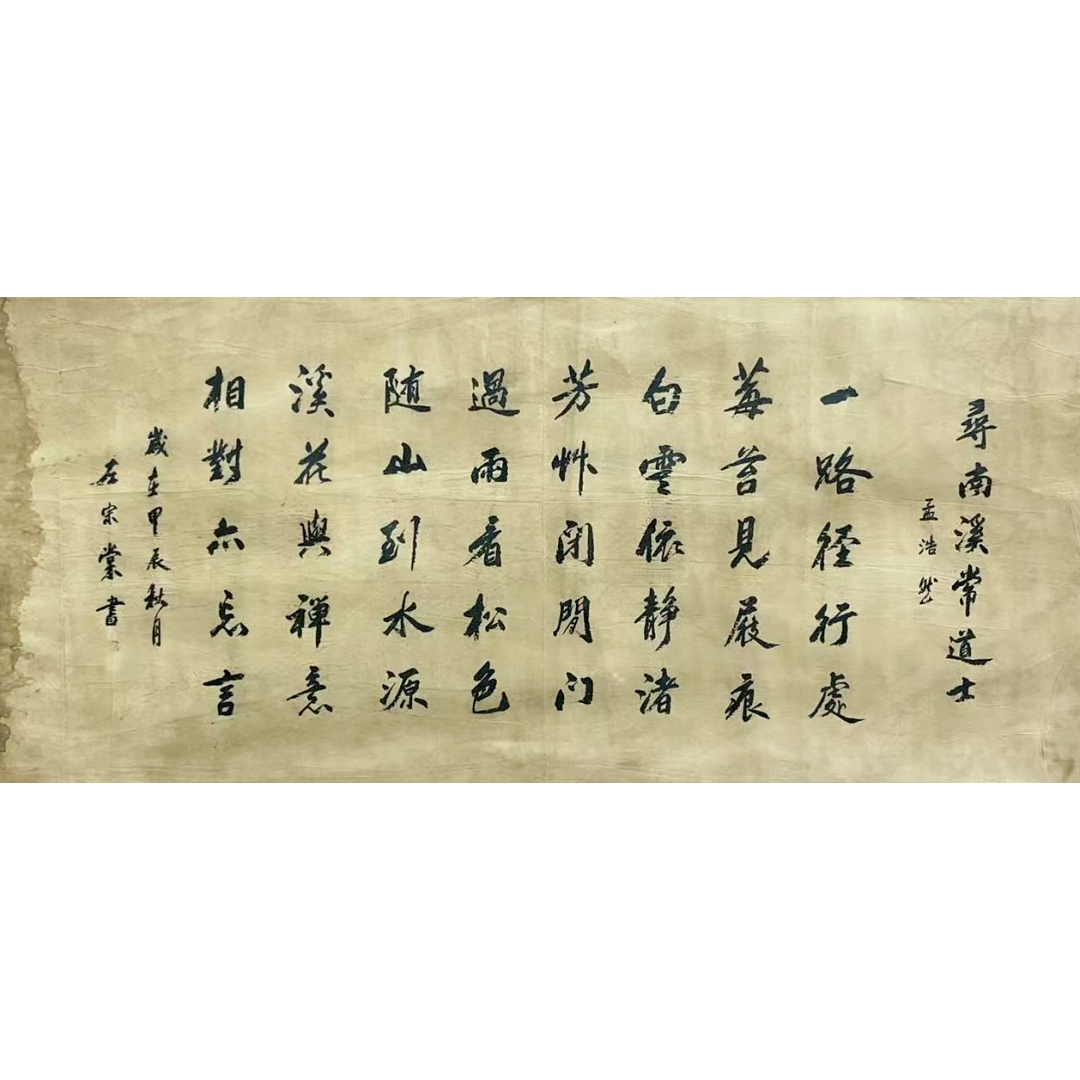 尋南溪常道士
孟浩然
一路徑行處
莓苔見屐痕
白雲依静渚
芳艸閉閒门
過雨看松色
随山到水源
溪花與禅意
相對亦忘言
歲在甲辰秋月
左宗棠書